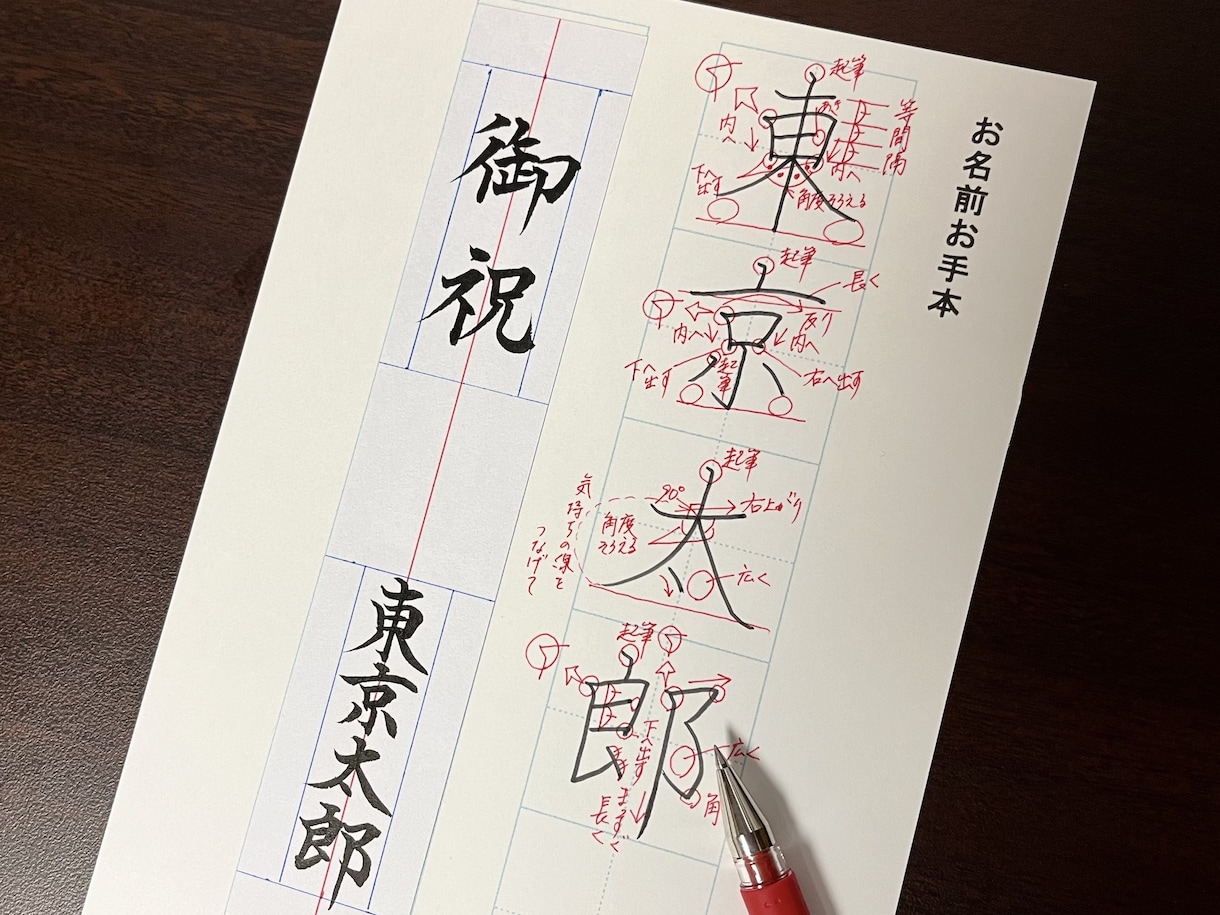 お名前お手本
東
起筆
あき
等間隔
内へ
内へ
下へ出す
角度そろえる
京
起筆
長く
反り
内へ
内へ
下へ出す
起筆
右へ出す
太
起筆
90°
右上がり
角度そろえる
気持ちの線をつなげて
広く
郎
起筆
下へ出す
広く
角
長く
御祝
東京太郎